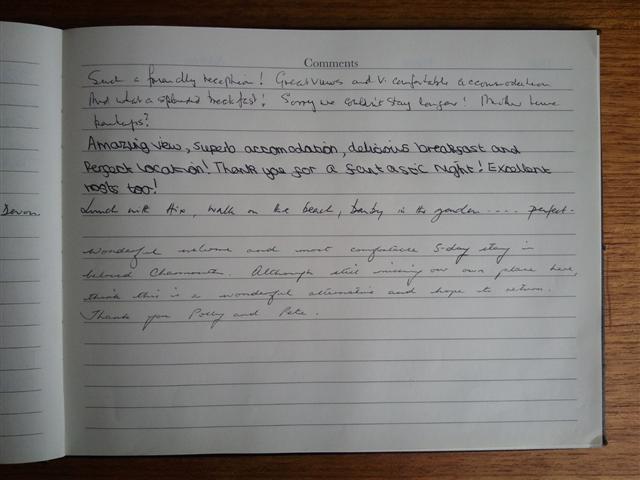 Comments
Such a friendly reception! Great views and V. comfortable accommodation
And what a splendid breakfast! Sorry we couldn't stay longer! Another time
perhaps?
Amazing view, superb accomodation, delicious breakfast and
Perfect location! Thank you for a fantastic night! Excellent
hosts too!
Devon
Lunch with Hix, walk on the beach, in the garden .... perfect.
Wonderful welcome and most comfortable 5-day stay in
beloved Charmouth. Although still missing our own place here,
think this is a wonderful alternative and hope to return.
Thank you Polly and Pete.